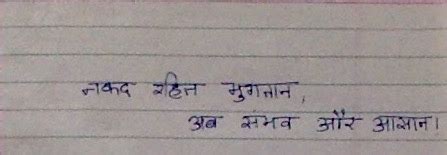 नकद रहित भुगतान,
अब संभव और आसान।